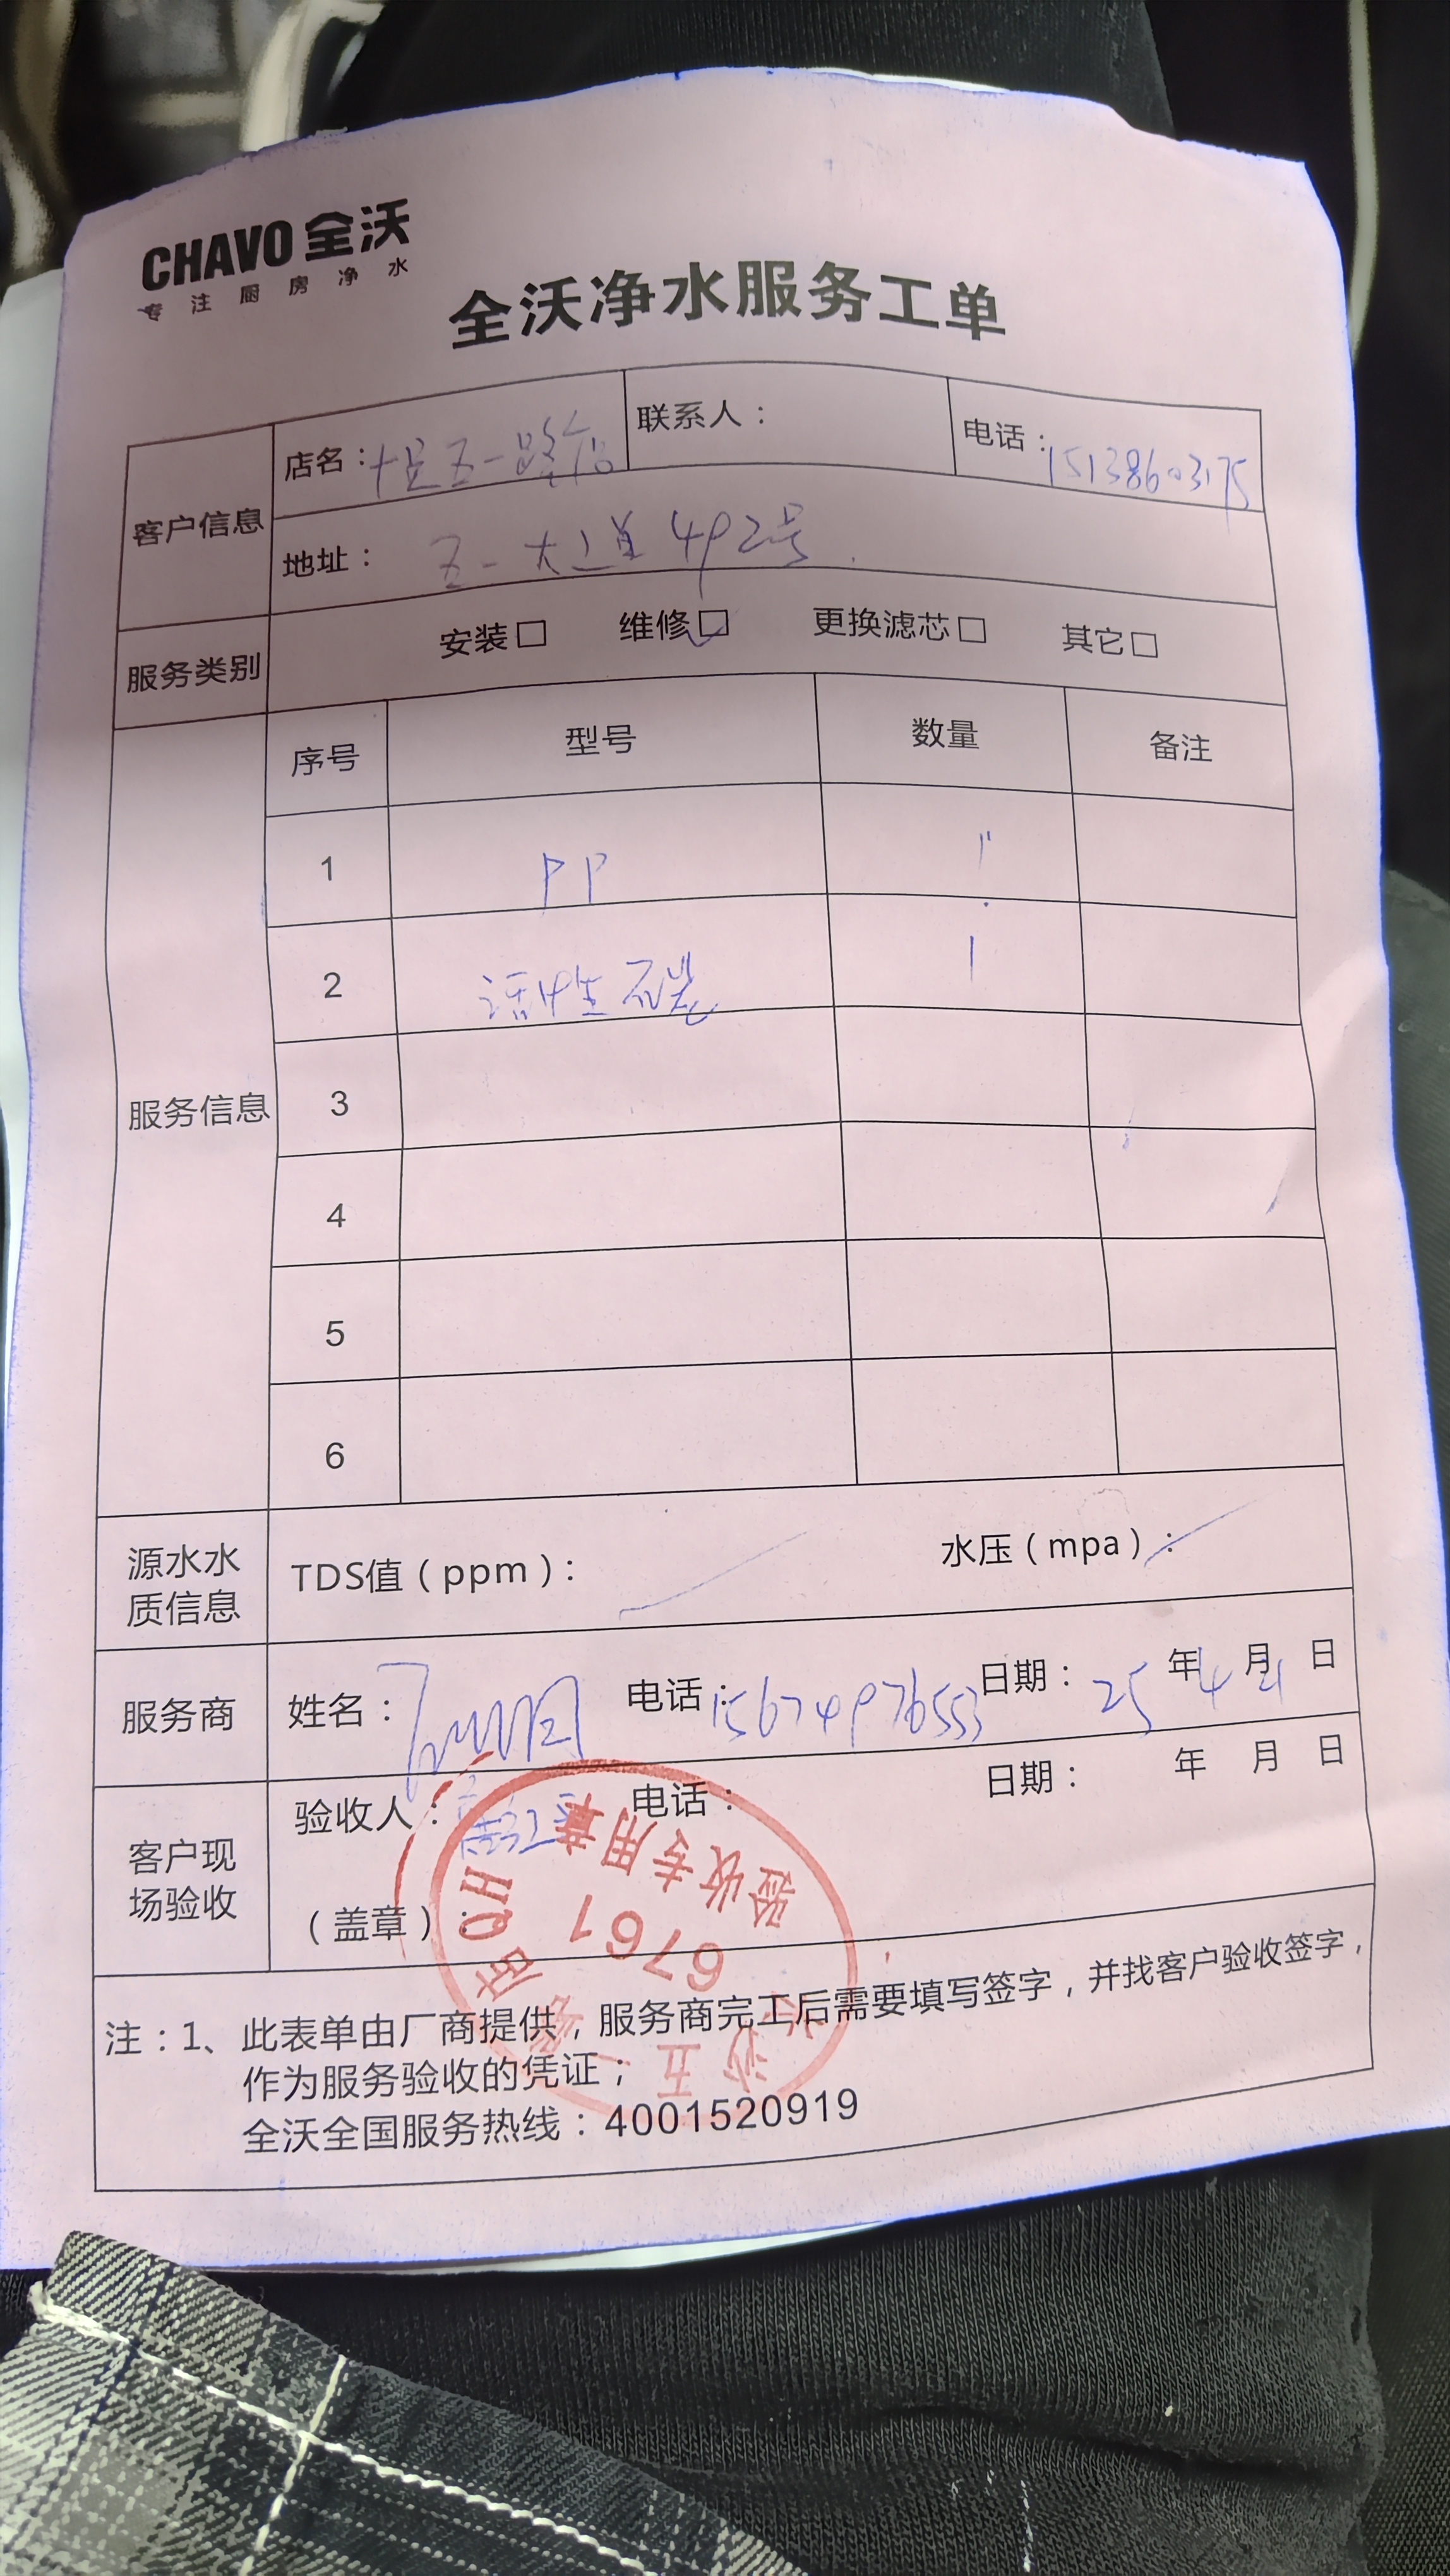 CHAVO 全沃
专注厨房净水
全沃净水服务工单
客户信息 店名： 五一路店 联系人： 电话：15138603175
地址： 五一大道492号
服务类别 安装□ 维修□ 更换滤芯□ 其它□
服务信息 序号 型号 数量 备注
1 PP 1
2 活性碳 1
3
4
5
6
源水水质信息 TDS值（ppm）： 水压（mpa）：
服务商 姓名： 电话：15674976553 日期：25年4月 日
客户现场验收 验收人： 电话： 日期： 年 月 日
（盖章）：
沙五一 店QH
6761
验收专用章
注：1、此表单由厂商提供，服务商完工后需要填写签字，并找客户验收签字，
作为服务验收的凭证；
全沃全国服务热线：4001520919